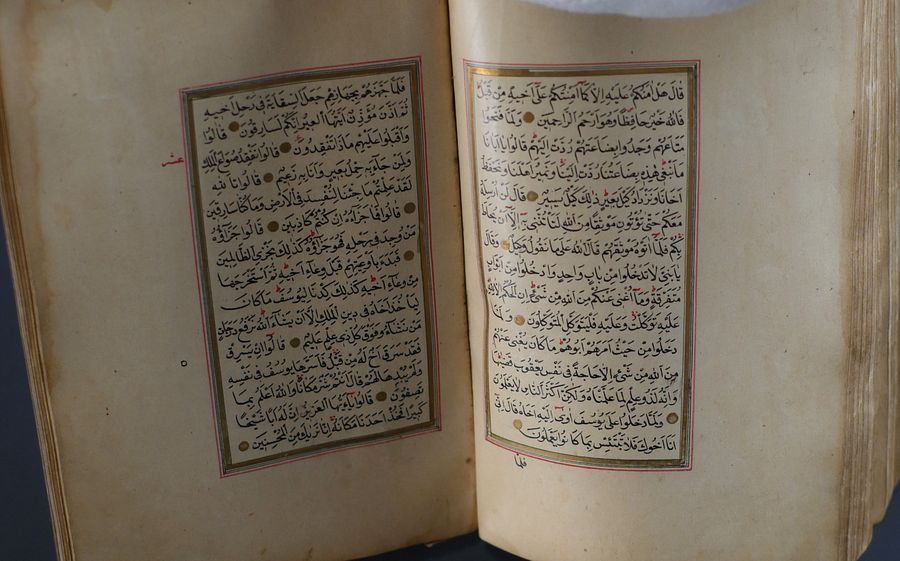 قَالَ هَلْ اٰمَنُكُمْ عَلَيْهِ اِلَّا كَمَٓا اَمِنْتُكُمْ عَلٰٓى اَخ۪يهِ مِنْ قَبْلُ
فَاللّٰهُ خَيْرٌ حَافِظًا وَهُوَ اَرْحَمُ الرَّاحِم۪ينَ وَلَمَّا فَتَحُوا
مَتَاعَهُمْ وَجَدُوا بِضَاعَتَهُمْ رُدَّتْ اِلَيْهِمْ قَالُوا يَٓا اَبَانَا
مَا نَبْغ۪ى هٰذِه۪ بِضَاعَتُنَا رُدَّتْ اِلَيْنَا وَنَم۪يرُ اَهْلَنَا وَنَحْفَظُ
اَخَانَا وَنَزْدَادُ كَيْلَ بَع۪يرٍ ذٰلِكَ كَيْلٌ يَس۪يرٌ قَالَ لَنْ اُرْسِلَهُ
مَعَكُمْ حَتّٰى تُؤْتُونِ مَوْثِقًا مِنَ اللّٰهِ لَتَاْتُنَّنِى بِه۪ٓ اِلَّٓا اَنْ يُحَاطَ
بِكُمْ فَلَمَّٓا اٰتَوْهُ مَوْثِقَهُمْ قَالَ اللّٰهُ عَلٰى مَا نَقُولُ وَك۪يلٌ وَقَالَ
يَا بَنِىَّ لَا تَدْخُلُوا مِنْ بَابٍ وَاحِدٍ وَادْخُلُوا مِنْ اَبْوَابٍ
مُتَفَرِّقَةٍ وَمَٓا اُغْن۪ى عَنْكُمْ مِنَ اللّٰهِ مِنْ شَىْءٍ اِنِ الْحُكْمُ اِلَّا لِلّٰهِ
عَلَيْهِ تَوَكَّلْتُ وَعَلَيْهِ فَلْيَتَوَكَّلِ الْمُتَوَكِّلُونَ وَلَمَّا
دَخَلُوا مِنْ حَيْثُ اَمَرَهُمْ اَبُوهُمْ مَا كَانَ يُغْن۪ى عَنْهُمْ
مِنَ اللّٰهِ مِنْ شَىْءٍ اِلَّا حَاجَةً ف۪ى نَفْسِ يَعْقُوبَ قَضٰيهَا
وَاِنَّهُ لَذُو عِلْمٍ لِمَا عَلَّمْنَاهُ وَلٰكِنَّ اَكْثَرَ النَّاسِ لَا يَعْلَمُونَ
وَلَمَّا دَخَلُوا عَلٰى يُوسُفَ اٰوٰٓى اِلَيْهِ اَخَاهُ قَالَ اِنّ۪ٓى
اَنَا اَخُوكَ فَلَا تَبْتَئِسْ بِمَا كَانُوا يَعْمَلُونَ
فلما
فَلَمَّا جَهَّزَهُمْ بِجَهَازِهِمْ جَعَلَ السِّقَايَةَ ف۪ى رَحْلِ اَخ۪يهِ
ثُمَّ اَذَّنَ مُؤَذِّنٌ اَيَّتُهَا الْع۪يرُ اِنَّكُمْ لَسَارِقُونَ قَالُوا
وَاَقْبَلُوا عَلَيْهِمْ مَاذَا تَفْقِدُونَ قَالُوا نَفْقِدُ صُوَاعَ الْمَلِكِ
عشر
وَلِمَنْ جَٓاءَ بِه۪ حِمْلُ بَع۪يرٍ وَاَنَا بِه۪ زَع۪يمٌ قَالُوا تَاللّٰهِ
لَقَدْ عَلِمْتُمْ مَا جِئْنَا لِنُفْسِدَ فِى الْاَرْضِ وَمَا كُنَّا سَارِق۪ينَ
قَالُوا فَمَا جَزَٓاؤُهُٓ اِنْ كُنْتُمْ كَاذِب۪ينَ قَالُوا جَزَٓاؤُهُ
مَنْ وُجِدَ ف۪ى رَحْلِه۪ فَهُوَ جَزَٓاؤُهُ كَذٰلِكَ نَجْزِى الظَّالِم۪ينَ
فَبَدَاَ بِاَوْعِيَتِهِمْ قَبْلَ وِعَٓاءِ اَخ۪يهِ ثُمَّ اسْتَخْرَجَهَا
مِنْ وِعَٓاءِ اَخ۪يهِ كَذٰلِكَ كِدْنَا لِيُوسُفَ مَا كَانَ
لِيَاْخُذَ اَخَاهُ ف۪ى د۪ينِ الْمَلِكِ اِلَّٓا اَنْ يَشَٓاءَ اللّٰهُ نَرْفَعُ دَرَجَاتٍ
مَنْ نَشَٓاءُ وَفَوْقَ كُلِّ ذ۪ى عِلْمٍ عَل۪يمٌ قَالُٓوا اِنْ يَسْرِقْ
فَقَدْ سَرَقَ اَخٌ لَهُ مِنْ قَبْلُ فَاَسَرَّهَا يُوسُفُ ف۪ى نَفْسِه۪
وَلَمْ يُبْدِهَا لَهُمْ قَالَ اَنْتُمْ شَرٌّ مَكَانًا وَاللّٰهُ اَعْلَمُ بِمَا
تَصِفُونَ قَالُوا يَٓا اَيُّهَا الْعَز۪يزُ اِنَّ لَهُٓ اَبًا شَيْخًا
كَب۪يرًا فَخُذْ اَحَدَنَا مَكَانَهُ اِنَّا نَرٰيكَ مِنَ الْمُحْسِن۪ينَ